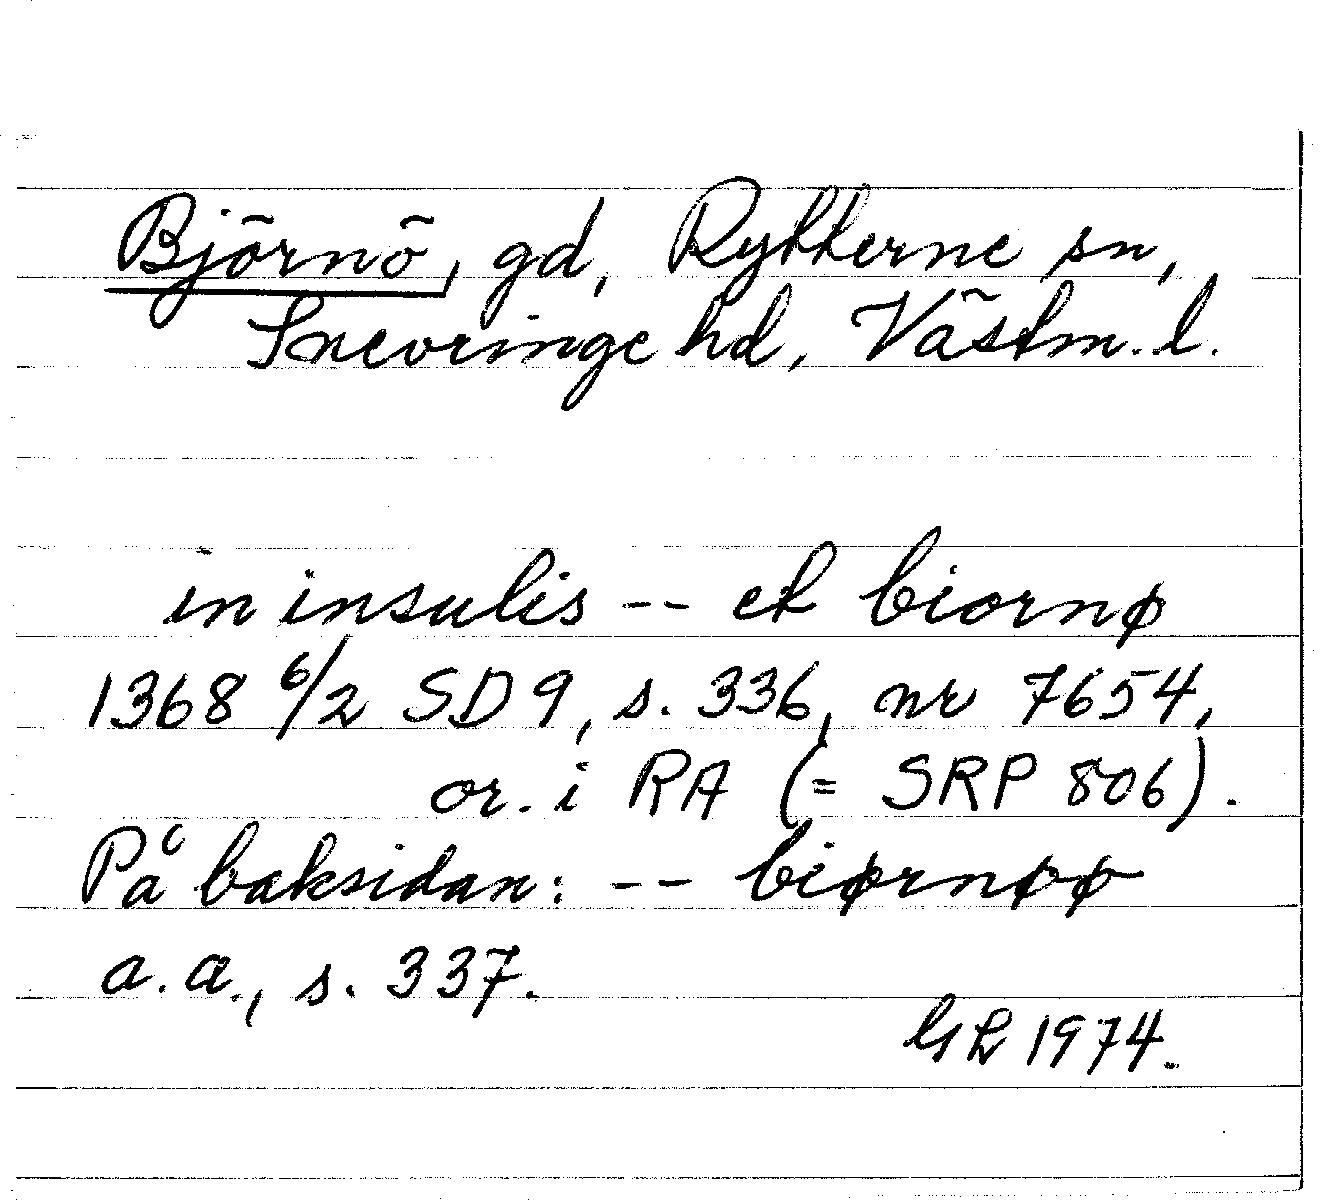 Björnö, gd, Rytterne sn,
Snevringe hd, Västm. l.
in insulis -- et biornø
1368 6/2 SD 9, s. 336, nr 7654,
or. i RA (= SRP 806).
På baksidan: -- biørnøø
a.a., s. 337.
GL 1974.